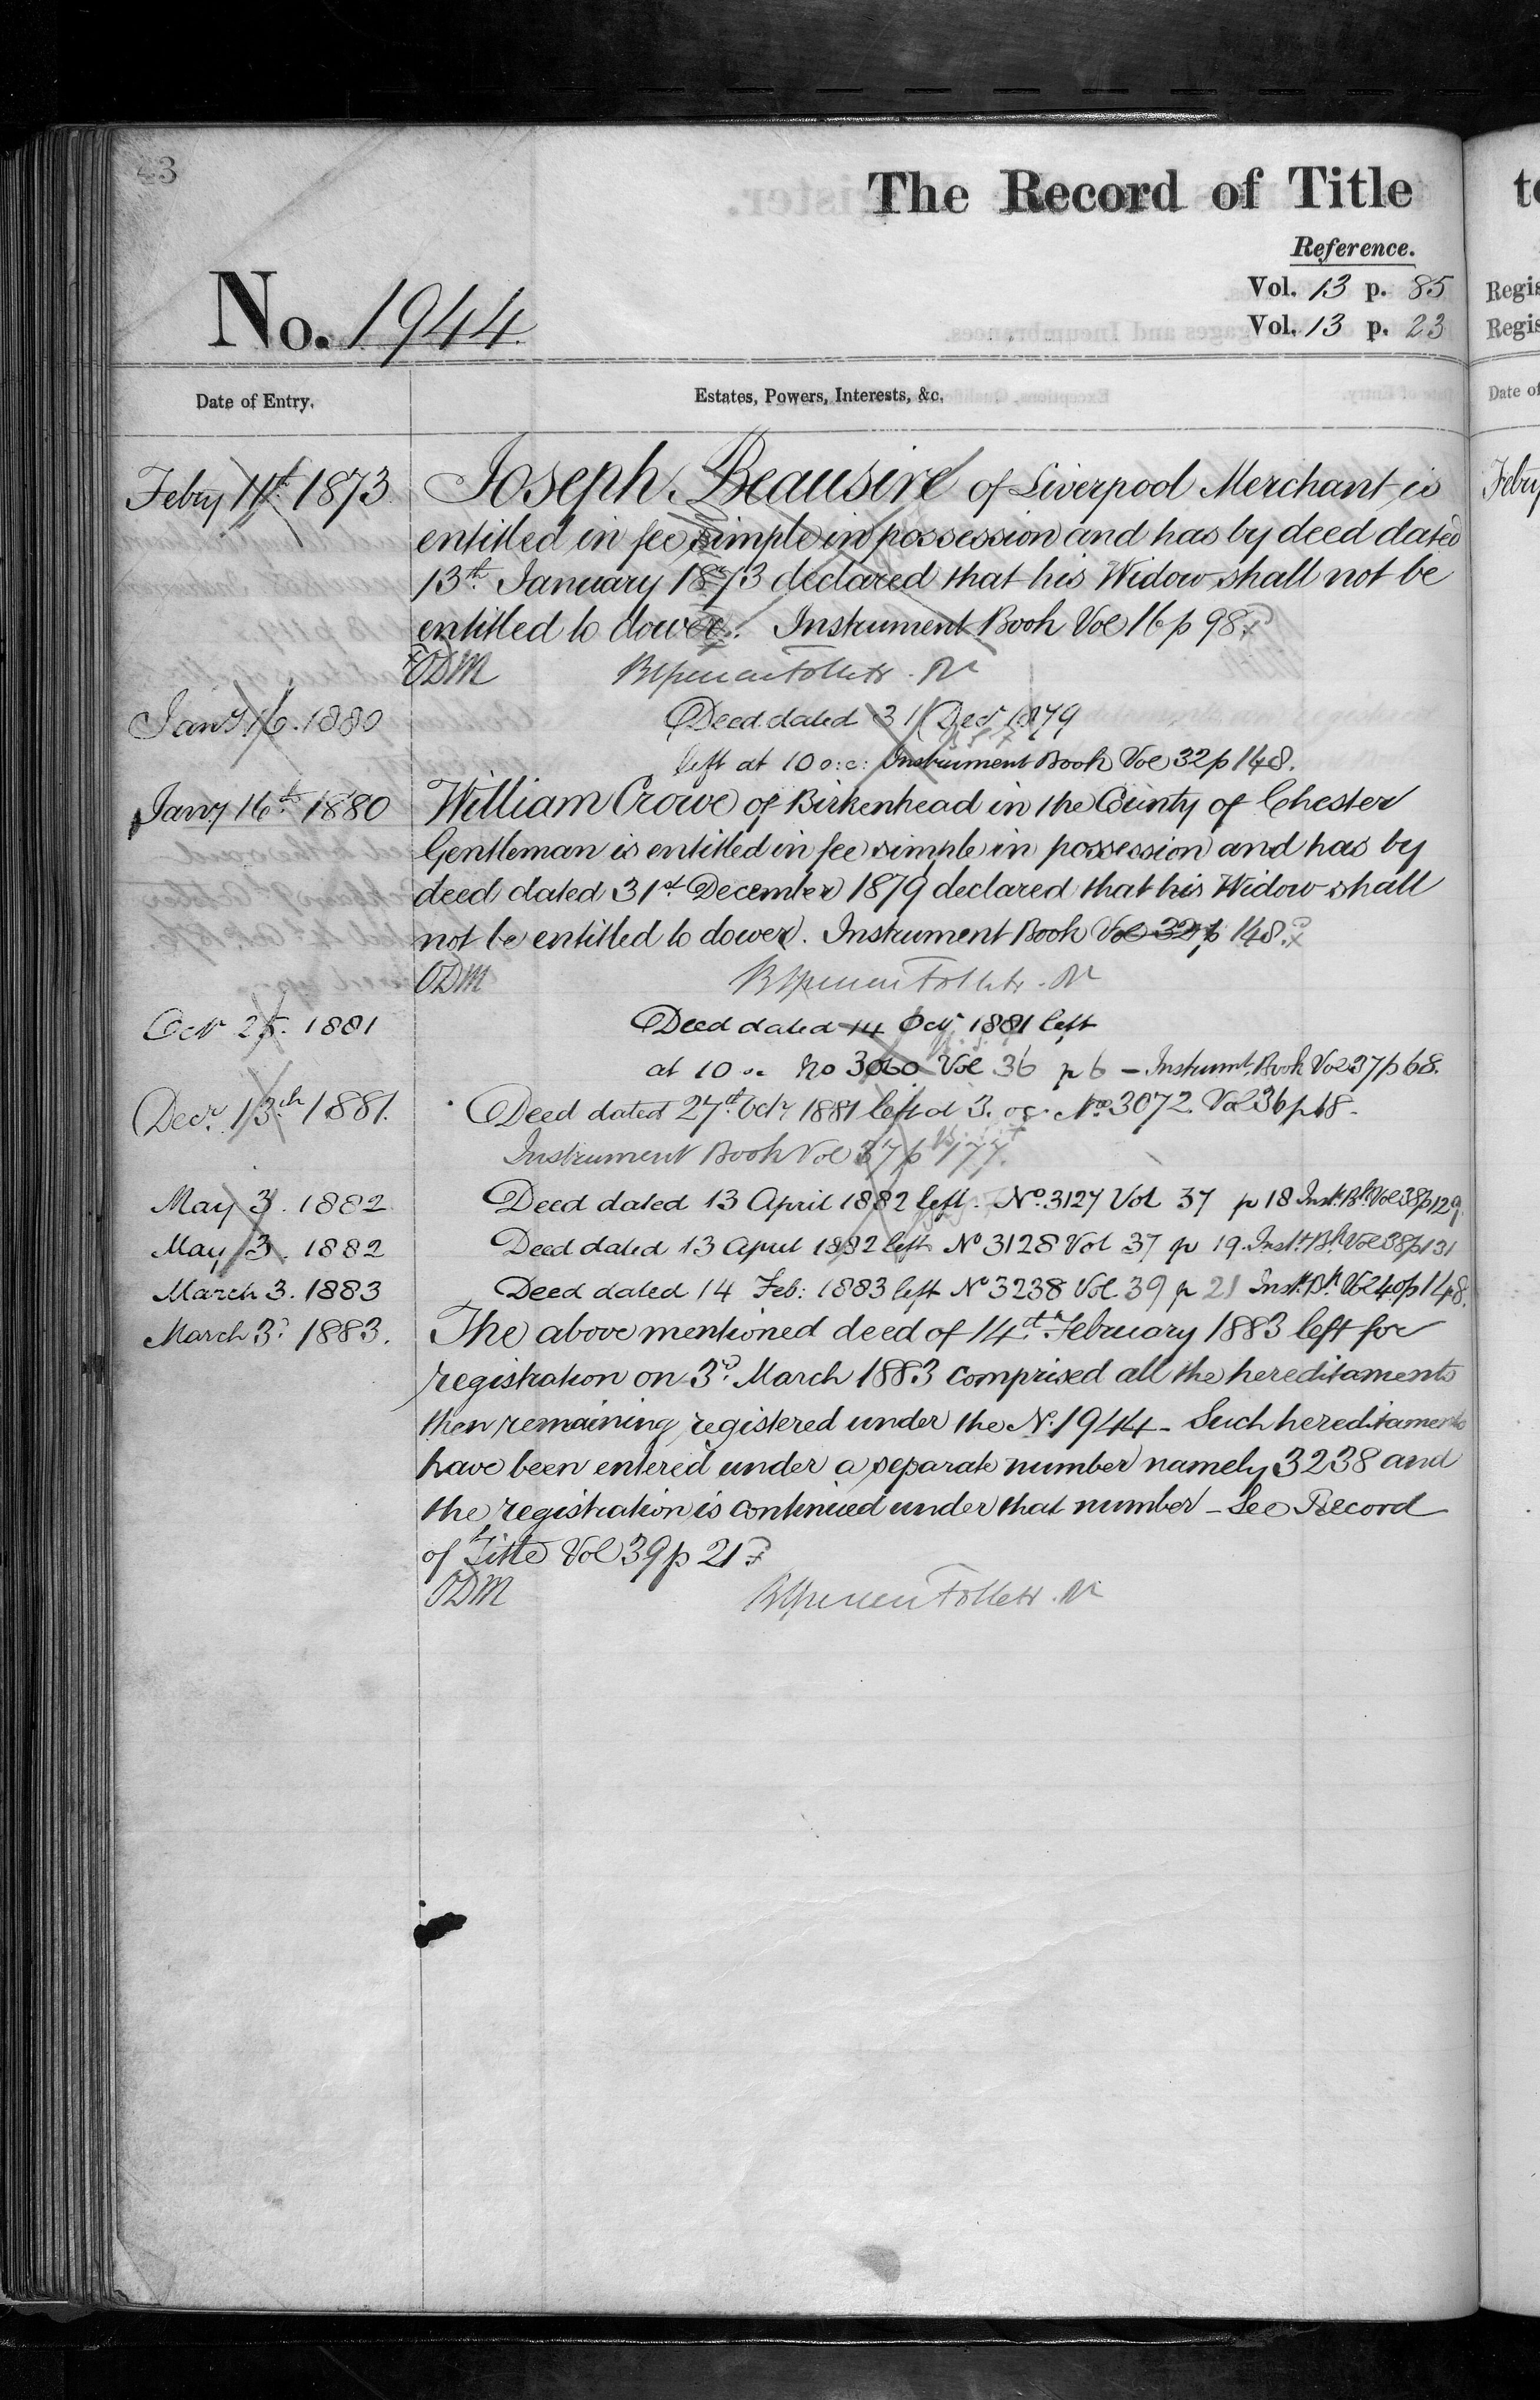 43
The Record of Title
Reference.
No. 1944.
Vol. 13 p. 85
Vol. 13 p. 23
Date of Entry.
Estates, Powers, Interests, &c.
Febry 11th 1873
Joseph Beausire of Liverpool Merchant is
entitled in fee simple in possession and has by deed dated
13th January 1873 declared that his Widow shall not be
entitled to dower. Instrument Book Vol 16 p 98.
ODM
Follett. R
Jany 16. 1880
Deed dated 31 Decr 1879
left at 10 o:c: Instrument Book Vol 32 p 148.
Jany 16th 1880
William Crowe of Birkenhead in the County of Chester
Gentleman is entitled in fee simple in possession and has by
deed dated 31st December 1879 declared that his Widow shall
not be entitled to dower. Instrument Book Vol 32 p 148.
ODM
Follett. R
Octr 25. 1881
Deed dated 14 Octr 1881 left
at 10 oc No 3060 Vol 36 p 6 – Instrumt. Book Vol 37 p 68.
Decr 13th 1881.
Deed dated 27th Octr 1881 left at 3. oc. No. 3072. Vol 36 p 18.
Instrument Book Vol 37 p 177.
May 3. 1882
Deed dated 13 April 1882 left. No. 3127 Vol 37 p 18 Inst. Bk Vol 38 p 129.
May 3. 1882
Deed dated 13 April 1882 left No 3128 Vol 37 p 19. Inst. Bk Vol 38 p 131
March 3. 1883
Deed dated 14 Feb: 1883 left No 3238 Vol. 39 p 21 Inst. Bk. Vol 40 p 148.
March 3d 1883.
The above mentioned deed of 14th February 1883 left for
registration on 3d March 1883 comprised all the hereditaments
then remaining registered under the No. 1944 – Such hereditaments
have been entered under a separate number namely 3238 and
the registration is continued under that number – See Record
of Title Vol 39 p 21
ODM
Follett. R
to
Regis
Regis
Date of
Febry